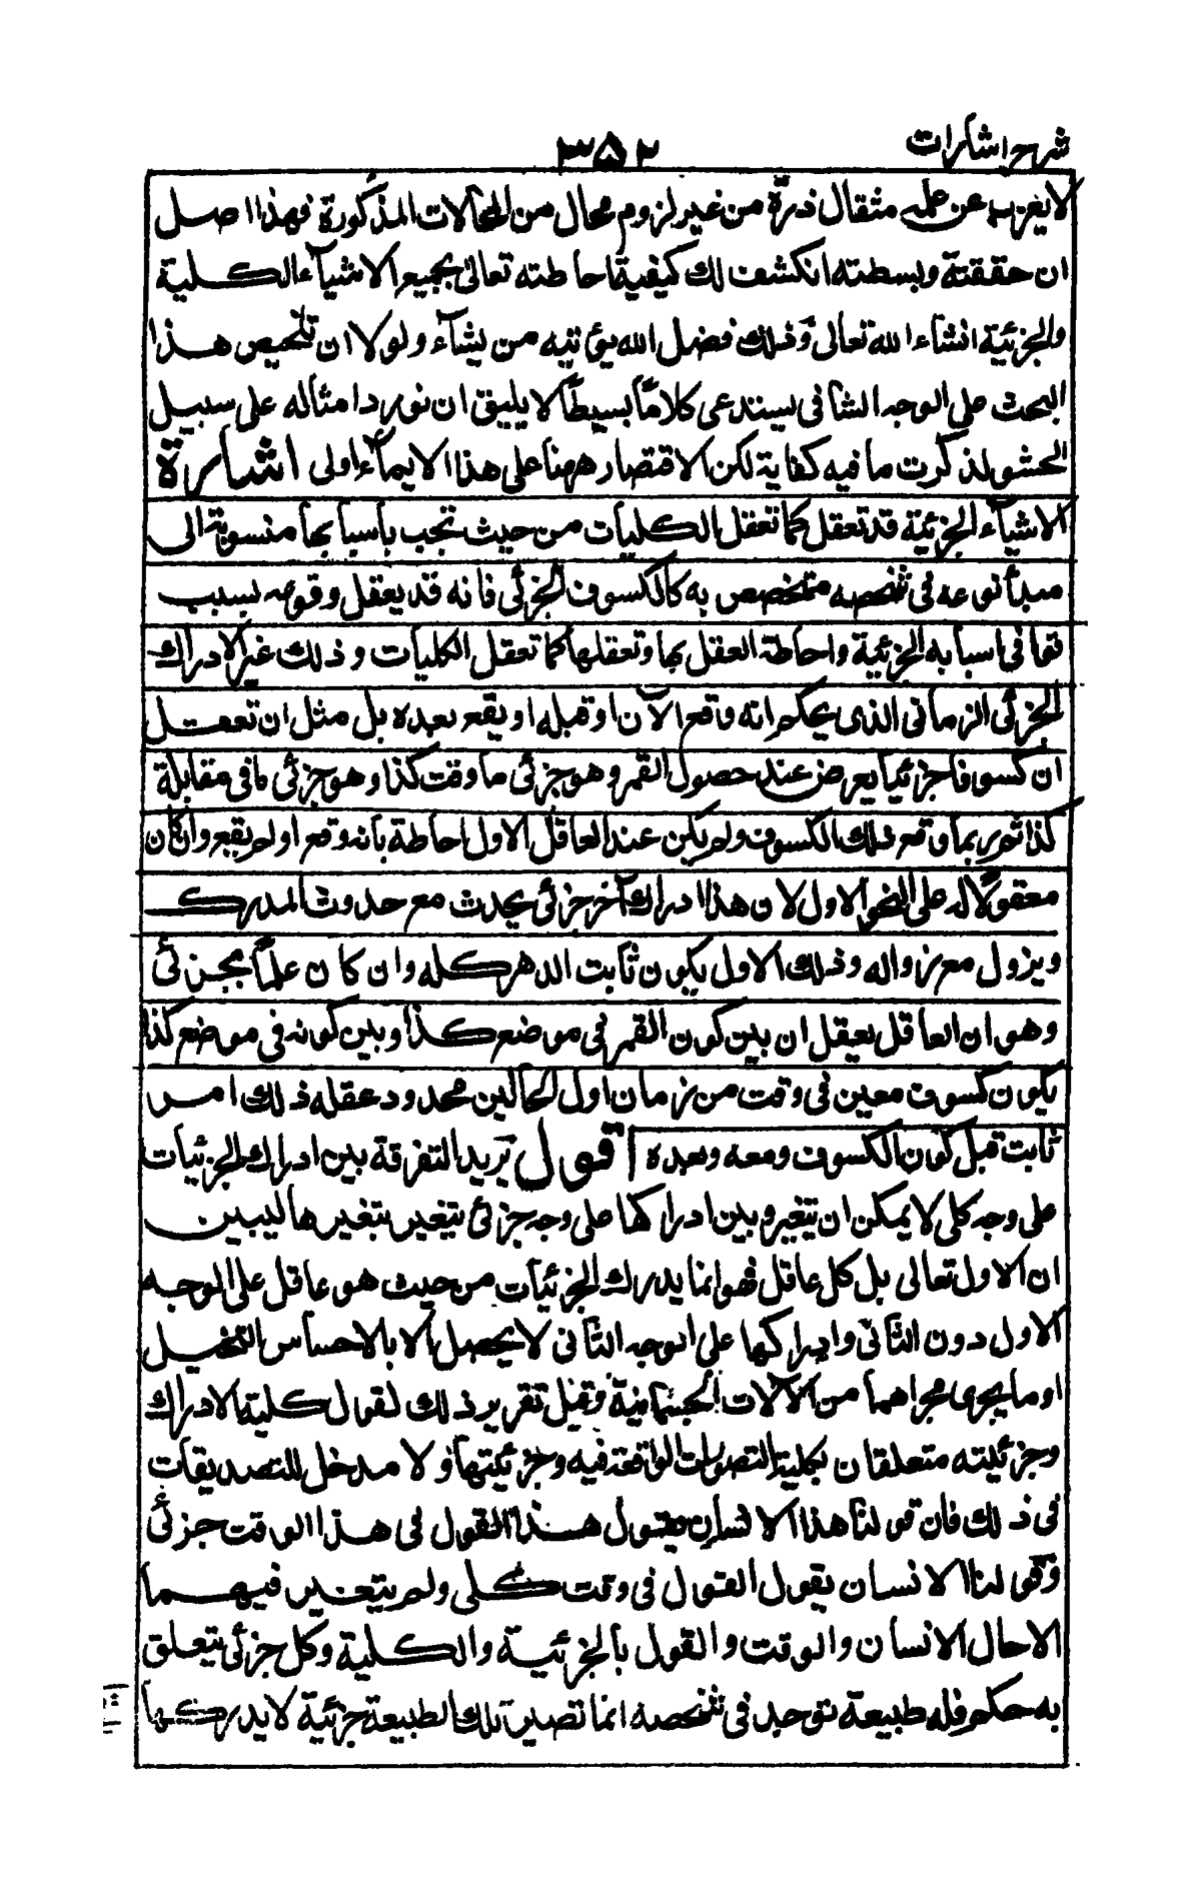 شرح اشارات ٣٥٢
لا يعزب عن علمه مثقال ذرة من غير لزوم محال من المحالات المذكورة فهذا اصل
ان حققته وبسطته انكشف لك كيفية احاطته تعالى بجميع الاشيآء الكلية
والجزئية انشاء الله تعالى وذلك فضل الله يؤتيه من يشآء ولولا ان تلخيص هذا
البحث على الوجه الشافى يستدعى كلاماً بسيطاً لا يليق ان نورد امثاله على سبيل
الحشو لذكرت ما فيه كفاية لكن الاقتصار ههنا على هذا الايمآء اولى اشارة
الاشيآء الجزئية قد تعقل كما تعقل الكليات من حيث تجب بأسبابها منسوبة الى
مبدأ نوعه فى شخصه متخصص به كالكسوف الجزئى فانه قد يعقل وقوعه بسبب
توافى اسبابه الجزئية واحاطة العقل بها وتعقلها كما تعقل الكليات وذلك غير الادراك
الجزئى الزمانى الذى يحكم انه وقع الآن او قبله او يقع بعده بل مثل ان تعقل
ان كسوفا جزئيا يعرض عند حصول القمر وهو جزئى ما وقت كذا وهو جزئى ما فى مقابلة
كذا ثم ربما وقع ذلك الكسوف ولم يكن عند العاقل الاول احاطة بانه وقع او لم يقع وان كان
معقولاً له على النحو الاول لان هذا ادراك آخر جزئى يحدث مع حدوث المدرك
ويزول مع زواله وذلك الاول يكون ثابت الدهر كله وان كان علماً بجزئى
وهو ان العاقل يعقل ان بين كون القمر فى موضع كذا وبين كونه فى موضع كذا
يكون كسوف معين فى وقت من زمان اول الحالين محدود عقله ذلك امر
ثابت قبل كون الكسوف ومعه وبعده اقول يريد التفرقة بين ادراك الجزئيات
على وجه كلى لا يمكن ان يتغير وبين ادراكها على وجه جزئى يتغير بتغيرها ليبين
ان الاول تعالى بل كل عاقل فهو انما يدرك الجزئيات من حيث هو عاقل على الوجه
الاول دون الثانى وادراكها على الوجه الثانى لا يحصل الا بالاحساس التخيل
او ما يجرى مجراهما من الآلات الجسمانية وقبل تقرير ذلك نقول كلية الادراك
وجزئيته متعلقان بكلية التصورات الواقعة فيه وجزئيتها ولا مدخل للتصديقات
فى ذلك فان قولنا هذا الانسان يقول هذا القول فى هذا الوقت جزئى
وقولنا الانسان يقول القول فى وقت كلى ولم يتغير فيهما
الا حال الانسان والوقت والقول بالجزئية والكلية وكل جزئى يتعلق
به حكم فله طبيعة توجد فى شخصه انما تصير تلك الطبيعة جزئية لا يدركها